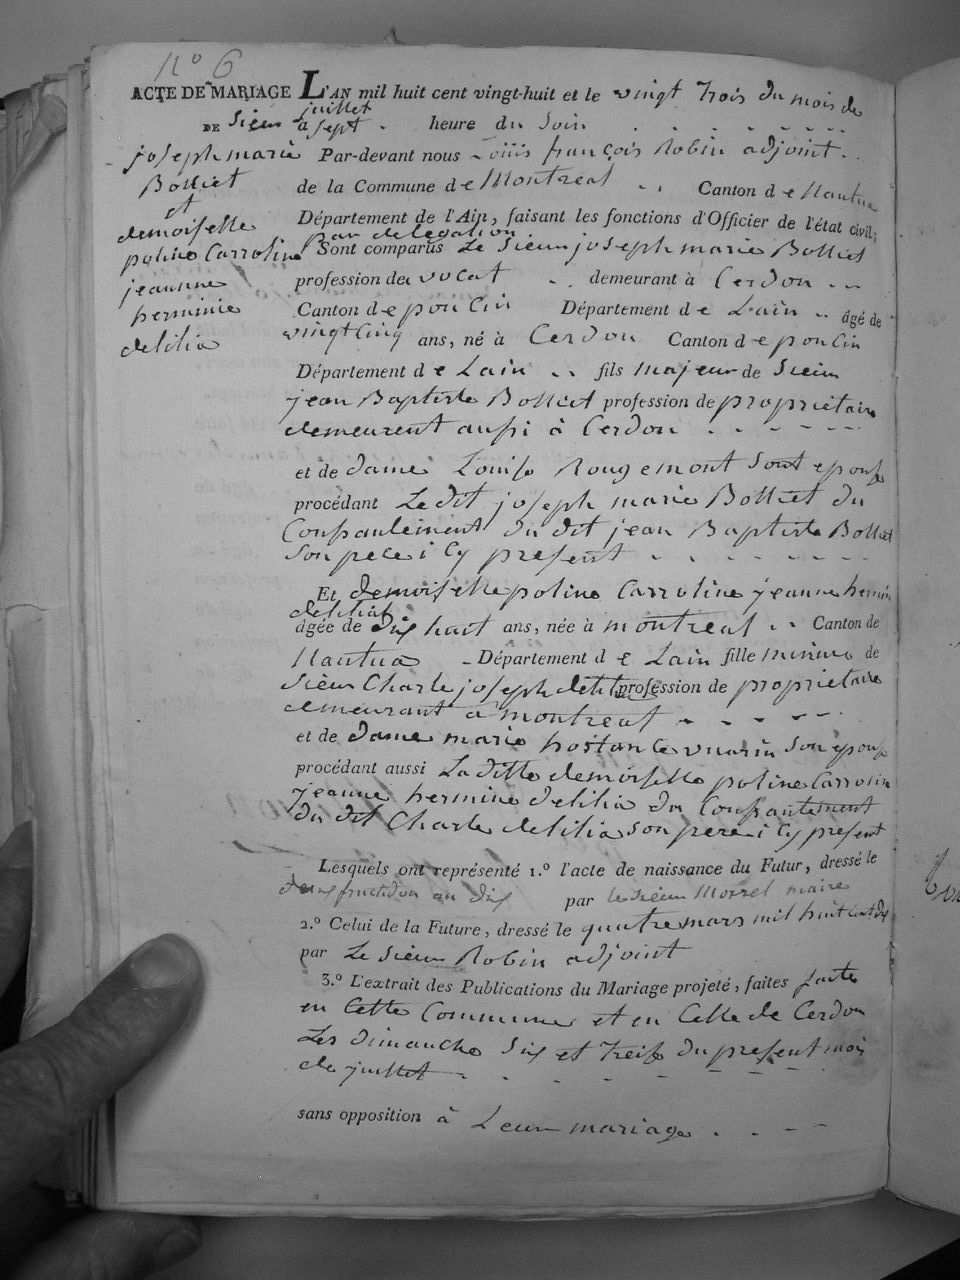 N° 6
ACTE DE MARIAGE
DE Sieur
joseph marie
Bolliet
et
demoiselle
poline Carroline
jeannne
herminie
delilia
L'AN mil huit cent vingt-huit et le vingt trois du mois de
juillet
à sept heure du Soir
Par-devant nous Louis françois Robin adjoint
de la Commune de Montreal Canton de Nantua
Département de l'Ain, faisant les fonctions d'Officier de l'état civil;
par delegation
Sont comparus Le Sieur joseph marie Bolliet
profession de avocat demeurant à Cerdon
Canton de poncin Département de Lain âgé de
vingt cinq ans, né à Cerdon Canton de poncin
Département de Lain fils majeur de Sieur
jean Baptiste Bolliet profession de proprietaire
demeurent aussi à Cerdon
et de dame Louise Rougemont Sont epouse
procédant Le dit joseph marie Bolliet du
Consantement du dit jean Baptiste Bolliet
Son pere i Cy present
Et demoiselle poline Carroline jeanne hermin
delilia
âgée de dix huit ans, née à montreal Canton de
Nantua Département de Lain fille minure de
Sieur Charle joseph profession de proprietaire
demeurant à montreal
et de dame marie Son epouse
procédant aussi La ditte demoiselle poline Carrolin
jeanne hermine delilia du Consantement
du dit Charle delilia son pere i Cy present
Lesquels ont représenté 1.° l'acte de naissance du Futur, dressé le
deux fructidor an dix par le sieur Morrel maire
2.° Celui de la Future, dressé le quatre mars mil huit cent dix
par Le Sieur Robin adjoint
3.° L'extrait des Publications du Mariage projeté, faites faite
en Cette Commune et en Celle de Cerdon
Les dimanche Six et treize du present mois
de juillet
sans opposition à Leur mariage